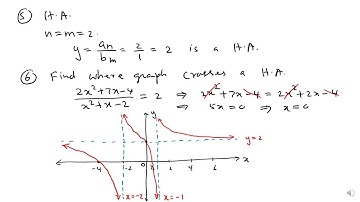 ⑤ H.A.
n=m=2.
y = an/bm = 2/1 = 2 is a H.A.
⑥ Find where graph crosses a H.A.
2x²+7x-4/x²+x-2 = 2 ⇒ 2x²+7x-4 = 2x²+2x-4
⇒ 5x=0 ⇒ x=0
y
y=2
-4 -2 0 2 4 6 x
x=-2 x=-1